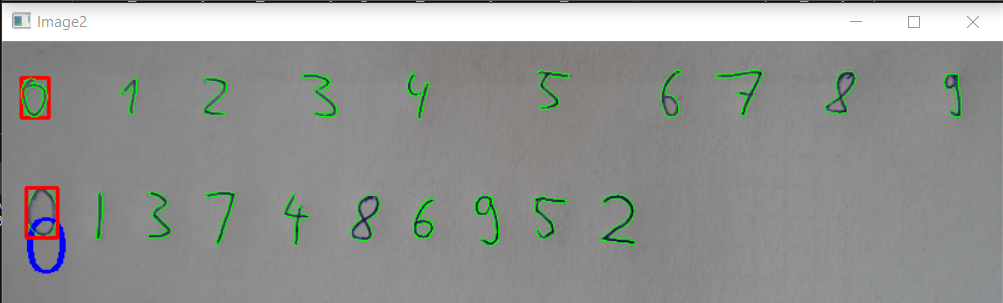 Image2
0 1 2 3 4 5 6 7 8 9
0 1 3 7 4 8 6 9 5 2
0